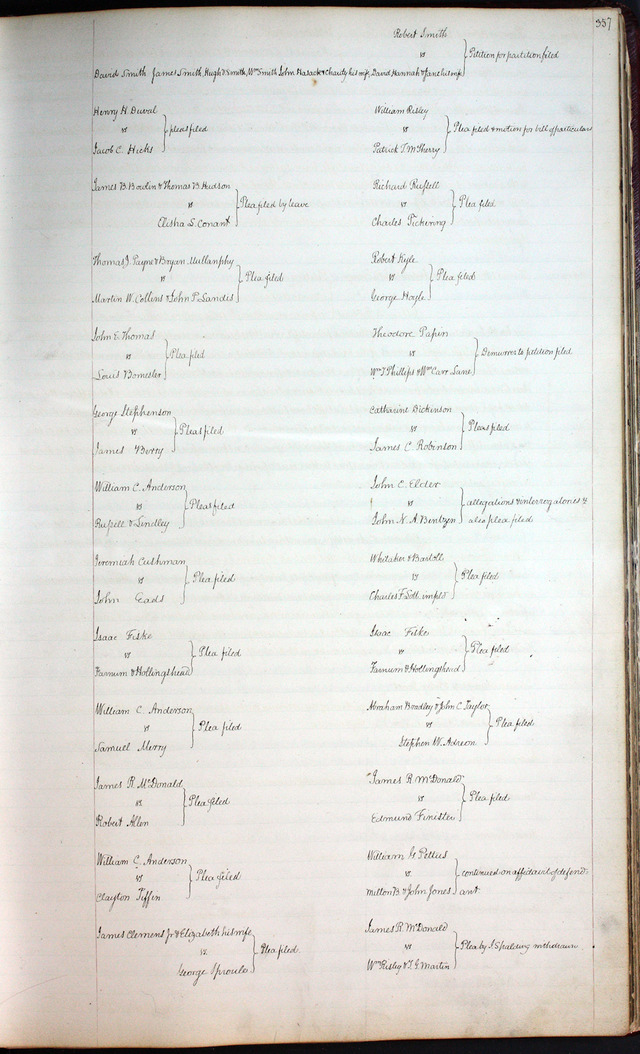 357
Robert Smith
vs } Petition for partition filed
David Smith James Smith, Hugh Smith, Wm Smith John & Charity his wife, David Hannah & Jane his wife
Henry H. Duval
vs } pleas filed
Jacob C. Hicks
William Risley
vs } Plea filed & motion for bill of particulars
Patrick T. McSherry
James B. Bowlin & Thomas B. Hudson
vs } Plea filed by leave
Elisha S. Conant
Richard Russell
vs } Plea filed
Charles Pickering
Thomas J. Payne & Bryan Mullanphy
vs } Plea filed
Martin W. Collins & John P. Landis
Robert Kyle
vs } Plea filed
George Hoyle
John E. Thomas
vs } Plea filed
Louis Bomester
Theodore Papin
vs } Demurrer to petition filed
Wm T Phillips & Wm Carr Lane
George Stephenson
vs } Pleas filed
James Berry
Catharine Dickinson
vs } Pleas filed
James C. Robinson
William C. Anderson
vs } Pleas filed
Russell & Lindley
John C. Elder
vs } allegations & interrogatories &
John N. A. Bentzen also plea filed
Jeremiah Cushman
vs } Plea filed
John Eads
Whitaker & Bartoll
vs } Plea filed
Charles F. impld
Isaac Fiske
vs } Plea filed
Farnum & Hollingshead
Isaac Fiske
vs } Plea filed
Farnum & Hollingshead
William C. Anderson
vs } Plea filed
Samuel Merry
Abraham Bradley & John C. Taylor
vs } Plea filed
Stephen W. Adreon
James R. McDonald
vs } Plea filed
Robert Allen
James R. McDonald
vs } Plea filed
Edmund Finister
William C. Anderson
vs } Plea filed
Clayton Tiffin
William G. Pettus
vs } continued on affidavit of defend-
Milton B. & John Jones ant
James Clemens Jr & Elizabeth his wife
vs } Plea filed.
George Sproule
James R. McDonald
vs } Plea by J. Spalding withdrawn
Wm Risley & T. G. Martin